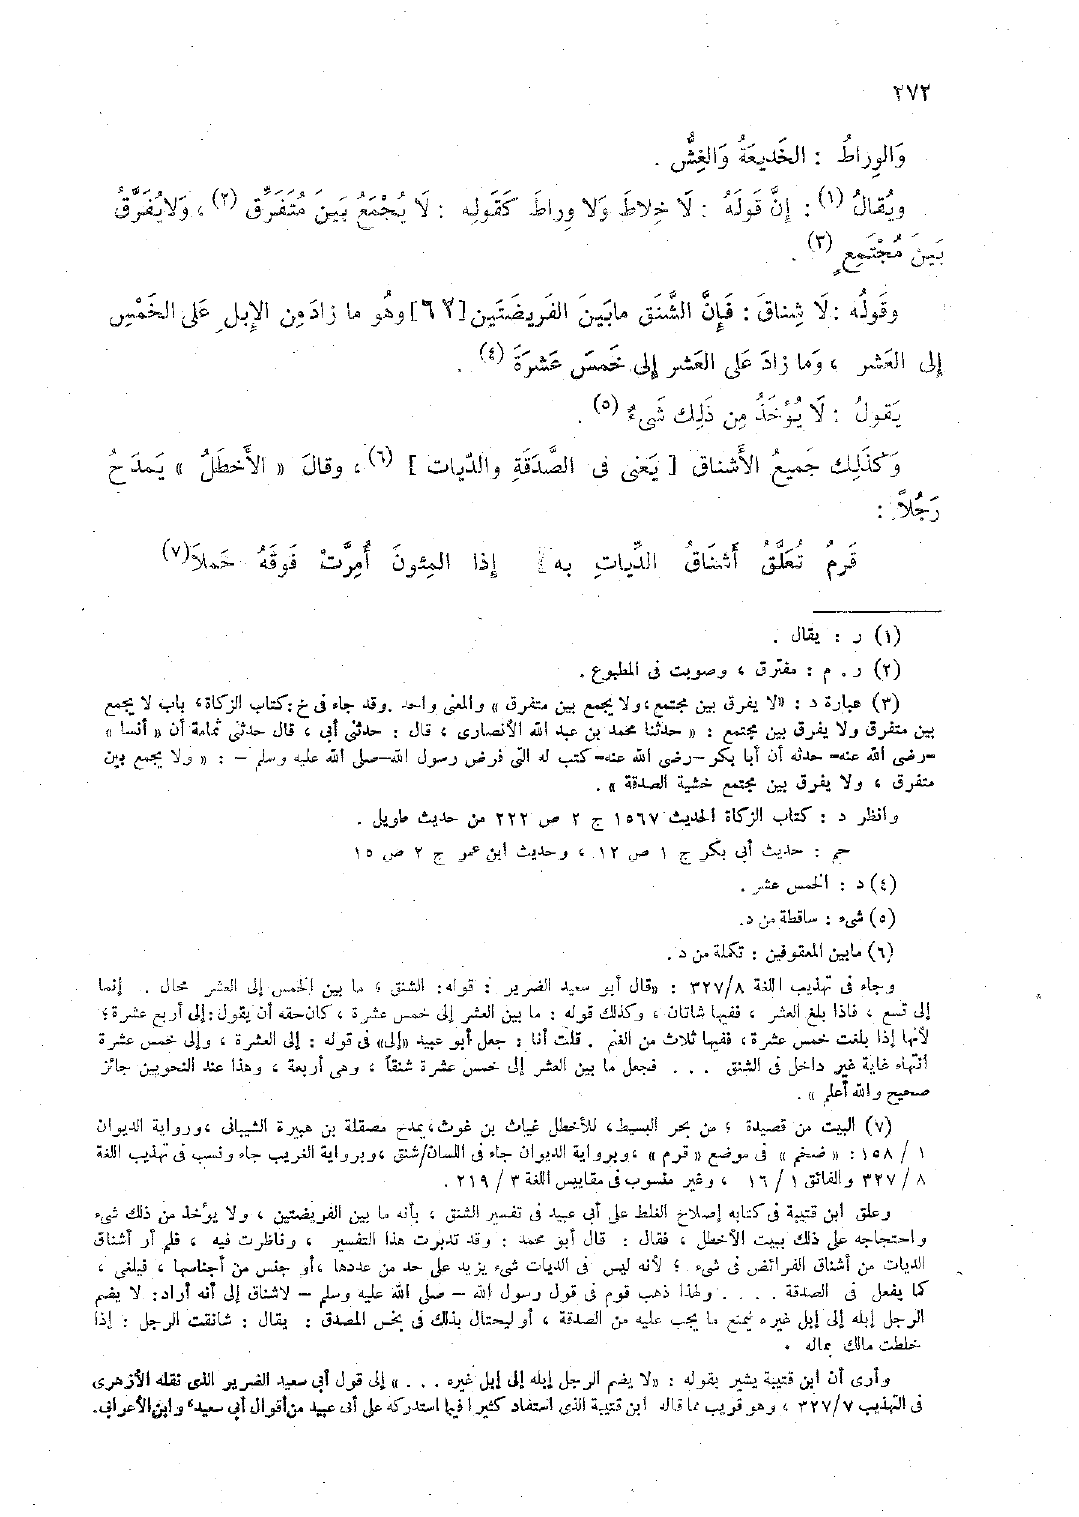 ٢٧٢
وَالوِراطُ : الخَديعَةُ وَالغِشُّ .
ويُقالُ (١) : إنَّ قَولَهُ : لَا خِلاطَ وَلا وِراطَ كَقَولِه : لَا يُجْمَعُ بَينَ مُتَفَرِّق (٢) ، وَلايُفَرَّقُ
بَينَ مُجْتَمِعٍ (٣) .
وقَولُه : لَا شِناقَ : فَإِنَّ الشَّنَق مابَينَ الفَريضَتَين [٦٧] وهُو ما زادَ مِن الإبل عَلى الخَمْسِ
إلى العَشر ، وَما زادَ عَلى العَشر إلى خَمسَ عَشرَةَ (٤) .
يَقولُ : لَا يُؤخَذُ مِن ذَلِك شَىءٌ (٥) .
وَكَذَلِك جَميعُ الأَشناق [ يَعنى فى الصَّدَقَةِ والدّيات ] (٦) ، وقالَ « الأَخطَلُ » يَمدَحُ
رَجُلاً :
قَرمٌ تُعَلَّقُ أَشناقُ الدِّياتِ بِه إذا المِئونَ أُمِرَّتْ فَوقَهُ حَملاَ (٧)
(١) ر : يقال .
(٢) ر . م : مفترق ، وصوبت فى المطبوع .
(٣) عبارة د : «لا يفرق بين مجتمع ، ولا يجمع بين متفرق » والمعنى واحد . وقد جاء فى خ : كتاب الزكاة ، باب لا يجمع
بين متفرق ولا يفرق بين مجتمع : « حدثنا محمد بن عبد الله الأنصارى ، قال : حدثنى أبى ، قال حدثنى ثمامة أن « أنسا »
–رضى الله عنه– حدثه أن أبا بكر –رضى الله عنه– كتب له التى فرض رسول الله–صلى الله عليه وسلم – : « ولا يجمع بين
متفرق ، ولا يفرق بين مجتمع خشية الصدقة » .
وانظر د : كتاب الزكاة الحديث ١٥٦٧ ج ٢ ص ٢٢٢ من حديث طويل .
حم : حديث أبى بكر ج ١ ص ١٢ ، وحديث ابن عمر ج ٢ ص ١٥
(٤) د : الخمس عشر .
(٥) شىء : ساقطة من د.
(٦) مابين المعقوفين : تكملة من د .
وجاء فى تهذيب اللغة ٣٢٧/٨ : «قال أبو سعيد الضرير : قوله: الشنق ؛ ما بين الخمس إلى العشر محال . إنما
إلى تسع ، فاذا بلغ العشر ، ففيها شاتان ، وكذلك قوله : ما بين العشر إلى خمس عشرة ، كان حقه أن يقول : إلى أربع عشرة ؛
لأنها إذا بلغت خمس عشرة ، ففيها ثلاث من الغنم . قلت أنا : جعل أبو عبيد «إلى» فى قوله : إلى العشرة ، وإلى خمس عشرة
انتهاء غاية غير داخل فى الشنق . . . فجعل ما بين العشر إلى خمس عشرة شنقاً ، وهى أربعة ، وهذا عند النحويين جائز
صحيح والله أعلم » .
(٧) البيت من قصيدة ؛ من بحر البسيط ، للأخطل غياث بن غوث، يمدح مصقلة بن هبيرة الشيبانى ، ورواية الديوان
١ / ١٥٨ : « ضخم » فى موضع « قرم » ، وبرواية الديوان جاء فى اللسان/شنق ، وبرواية الغريب جاء ونسب فى تهذيب اللغة
٨ / ٣٢٧ والفائق ١ / ١٦ ، وغير منسوب فى مقاييس اللغة ٣ / ٢١٩ .
وعلق ابن قتيبة فى كتابه إصلاح الغلط على أبى عبيد فى تفسير الشنق ، بأنه ما بين الفريضتين ، ولا يؤخذ من ذلك شىء
واحتجاجه على ذلك ببيت الأخطل ، فقال : قال أبو محمد : وقد تدبرت هذا التفسير ، وناظرت فيه ، فلم أر أشناق
الديات من أشناق الفرائض فى شىء ؛ لأنه ليس فى الديات شىء يزيد على حد من عددها ، أو جنس من أجناسها ، فيلغى ،
كما يفعل فى الصدقة . . . . ولهذا ذهب قوم فى قول رسول الله – صلى الله عليه وسلم – لاشناق إلى أنه أراد: لا يضم
الرجل إبله إلى إبل غيره ليمنع ما يجب عليه من الصدقة ، أو ليحتال بذلك فى بخس المصدق : يقال : شانقت الرجل : إذا
خلطت مالك بماله .
وأرى أن ابن قتيبة يشير بقوله : «لا يضم الرجل إبله إلى إبل غيره . . . » إلى قول أبى سعيد الضرير الذى نقله الأزهرى
فى التهذيب ٣٢٧/٧ ، وهو قريب مما قاله ابن قتيبة الذى استفاد كثيرا فيما استدركه على أبى عبيد من أقوال أبى سعيد، وابن الأعرابى.